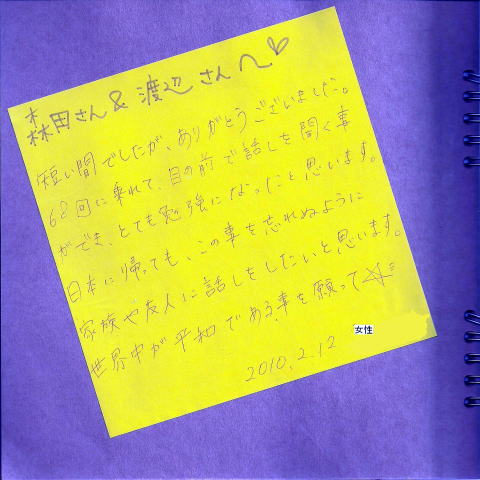 森田さん&渡辺さんへ♡
短い間でしたが、ありがとうございました。
68回に乗れて、目の前で話しを聞く事
ができ、とても勉強になったと思います。
日本に帰っても、この事を忘れぬように
家族や友人に話しをしたいと思います。
世界中が平和である事を願って☆
女性
2010.2.12